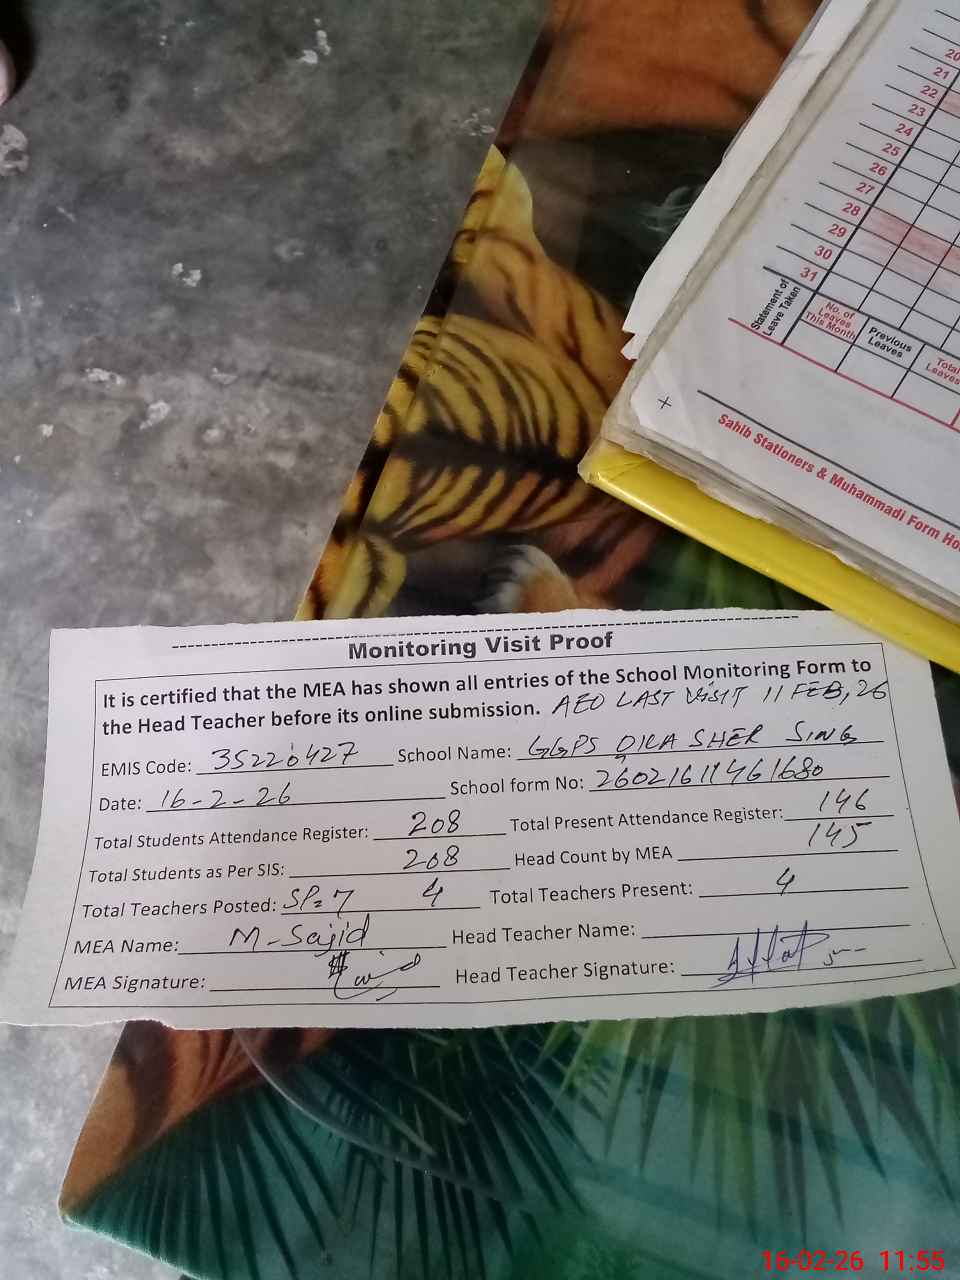 20
21
22
23
24
25
26
27
28
29
30
31
Statement of Leave Taken
No. of Leaves This Month
Previous Leaves
Total Leaves
Sahib Stationers & Muhammadi Form
Monitoring Visit Proof
It is certified that the MEA has shown all entries of the School Monitoring Form to
the Head Teacher before its online submission. AEO LAST VISIT 11 FEB, 26
EMIS Code: 35220427 School Name: GGPS DILA SHER SING
Date: 16-2-26 School form No: 26021611461680
Total Students Attendance Register: 208 Total Present Attendance Register: 146
Total Students as Per SIS: 208 Head Count by MEA 145
Total Teachers Posted: SP=7 4 Total Teachers Present: 4
MEA Name: M-Sajid Head Teacher Name:
MEA Signature: Head Teacher Signature:
16-02-26 11:55